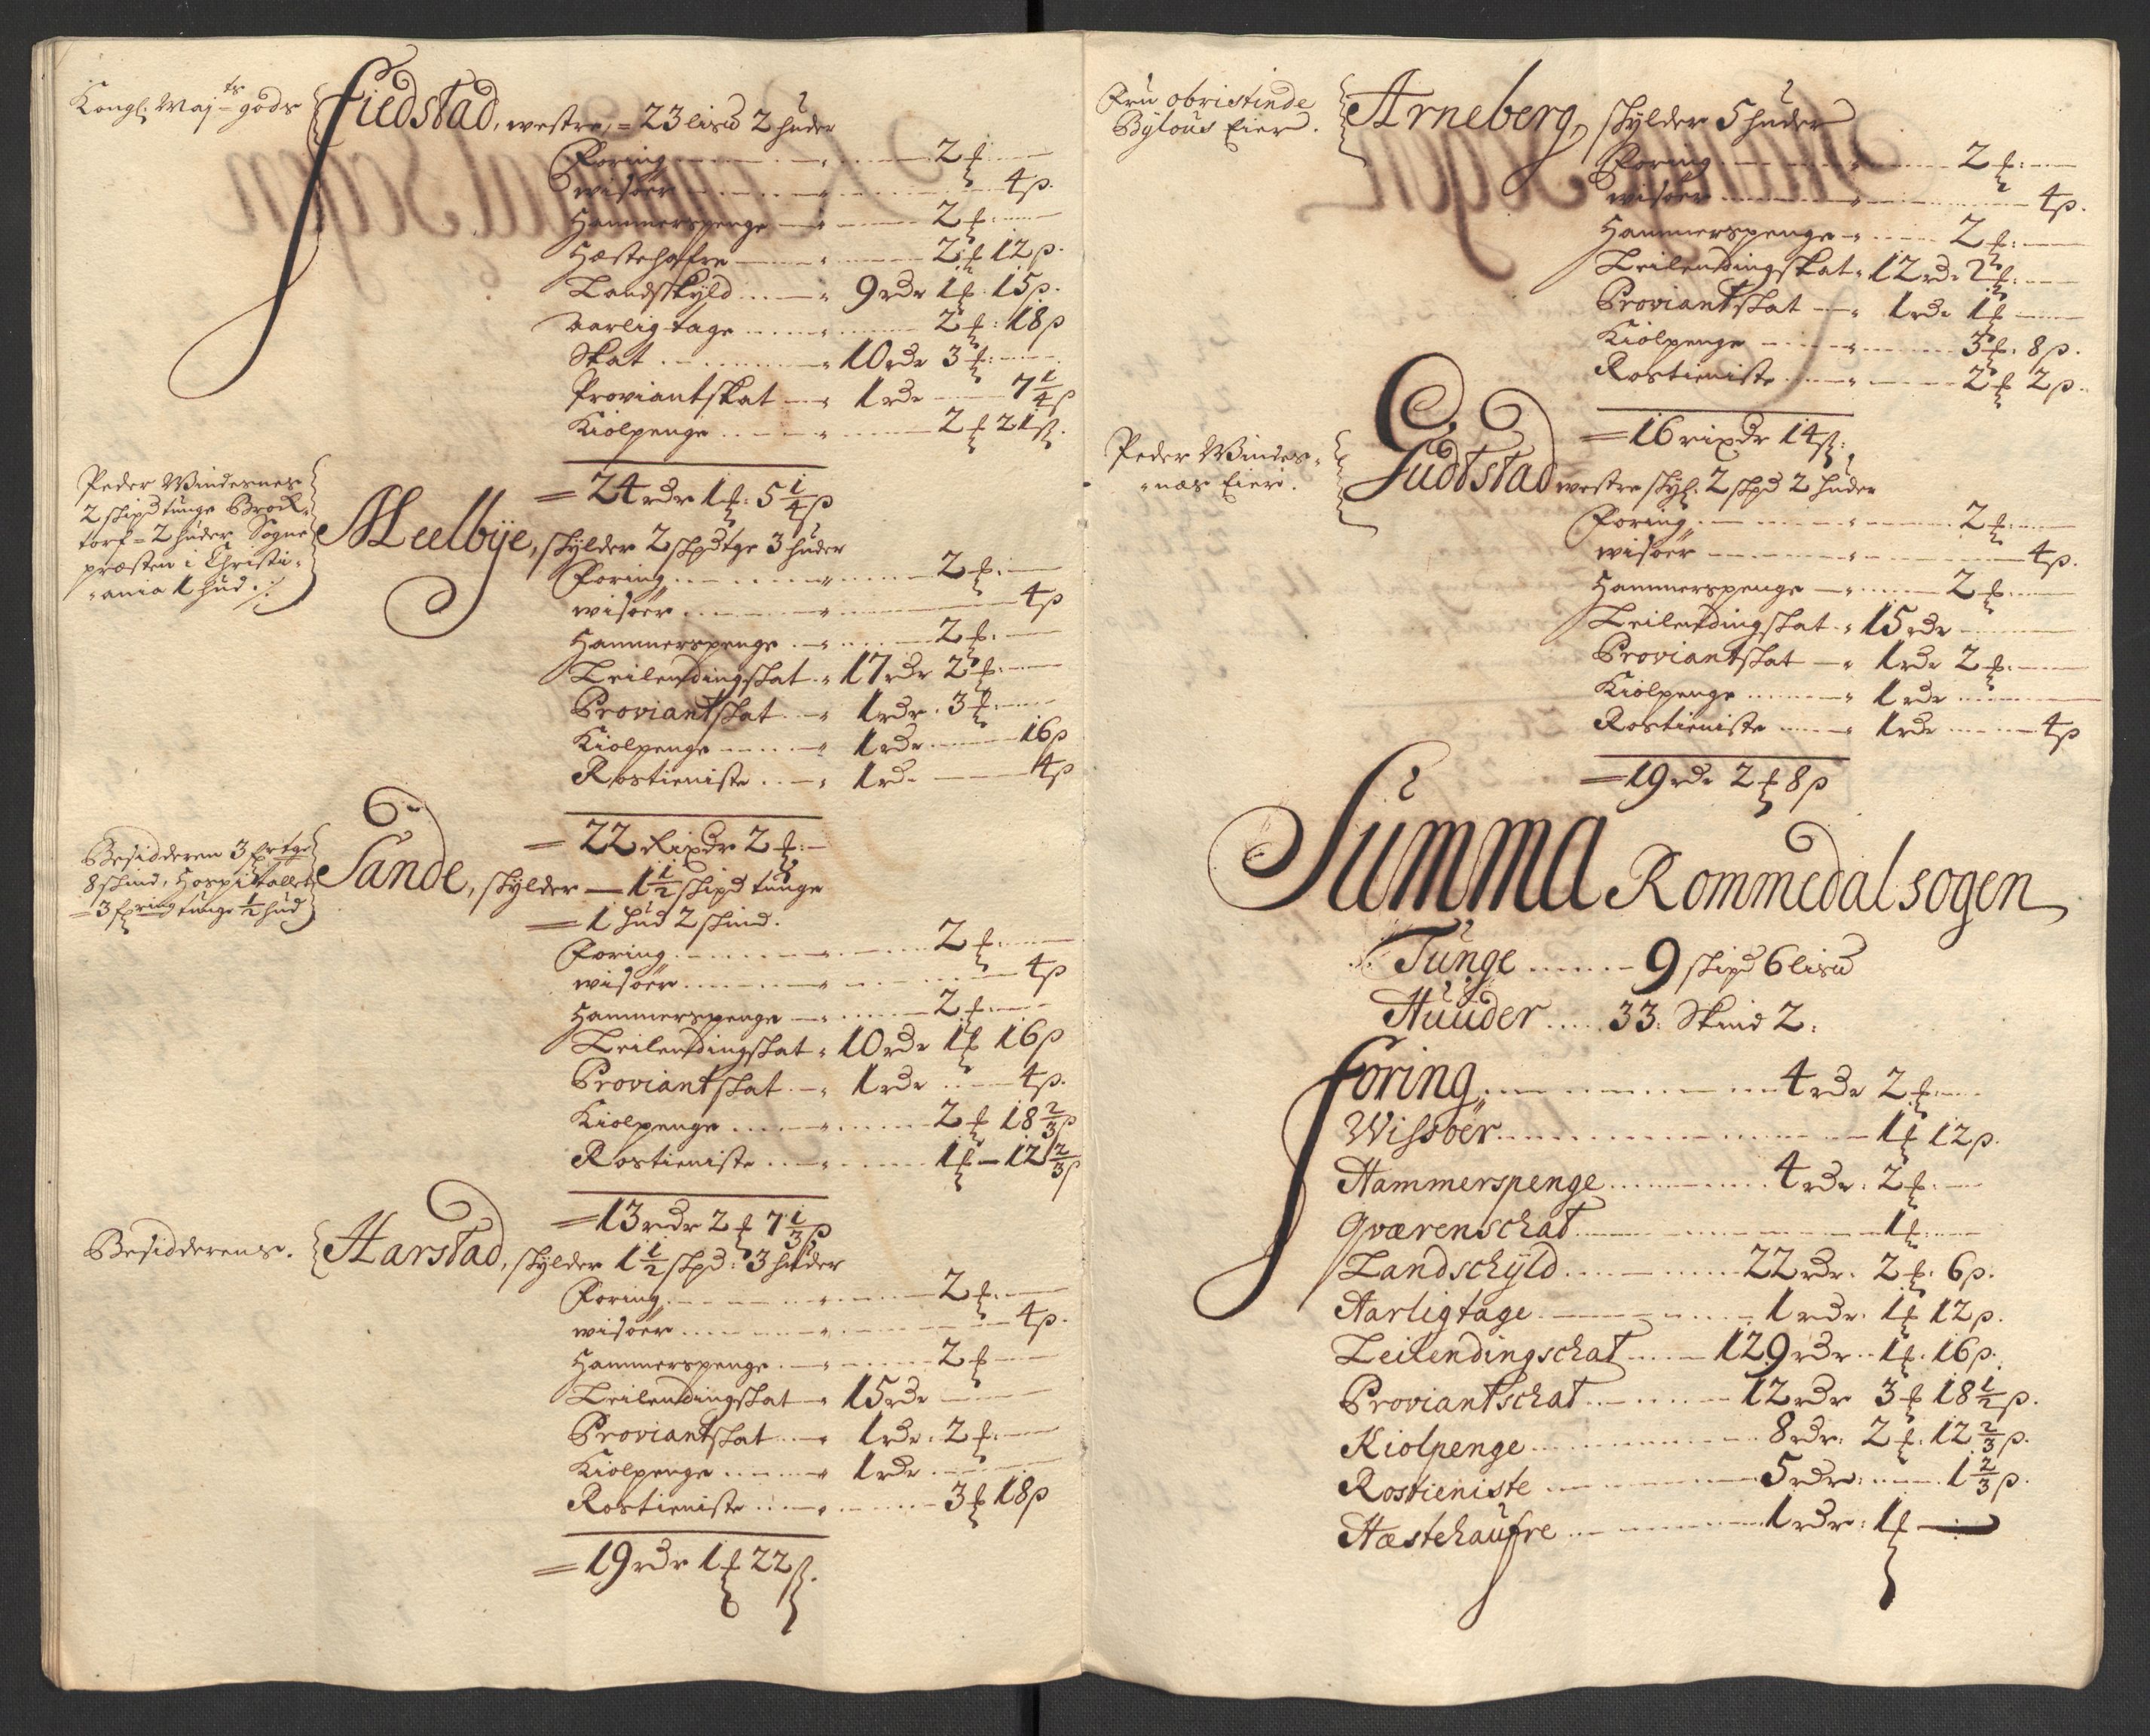 Kongl: Maj ts gods
Fiedstad, westre, = 23 lisd 2 huder
Foring 2 f
wisöer 4 ß.
Hammerspenge 2 f
Hæstehafre 2 f 12 ß.
Landskyld 9 rdr 1 f. 15 ß.
Aarlig tage 2 f: 18 ß
Skat 10 rdr 3 f:
Proviantskat 1 rdr 7 1/4 ß
Kiolpenge 2 f 21 ß.
= 24 rdr 1 f: 5 1/4 ß
Peder Windesnes
2 skipd tunge Brock-
torf = 2 huder Sogne
præsten i Christi-
-ania 1 hud ./.
Meelbÿe, skylder 2 skpd tge 3 huder
Foring 2 f.
wisöer 4 ß
Hammerspenge 2 f.
Leilendingskat 17 rdr 2 f:
Proviantskat 1 rdr. 3 f:
Kiolpenge 1 rdr 16 ß
Rostieniste 1 rd. 4 ß
= 22 Rixdr 2 f:
Besidderen 3 frtge
8 skind, Hospitallet
= 3 fring tunge 1/2 hud
Sande, skylder 1 1/2 skipd tunge
= 1 hud 2 skind.
Foring 2 f:
wisöer 4 ß
Hammerspenge 2 f:
Leilendingskat 10 rdr 1 f 16 ß
Proviantskat 1 rdr 4 ß.
Kiolpenge 2 f 18 2/3 ß
Rostieniste 1 f 12 2/3 ß
= 13 rdr 2 f 7 1/3 ß
Besidderens.
Harstad, skylder 1 1/2 skpd: 3 huder
Foring 2 f.
wisöer 4 ß.
Hammerspenge 2 f
Leilendingskat 15 rdr
Proviantskat 1 rdr. 2 f:
Kiolpenge 1 rdr
Rostieniste 3 f 18 ß
= 19 rdr 1 f 22 ß.
Fru obristinde
Bÿlous Eier.
Arneberg, skylder 5 huder
Foring 2 f:
wisöer 4 ß.
Hammerspenge 2 f:
Leilendingskat 12 rdr 2 f:
Proviantskat 1 rdr 1 f
Kiolpenge 3 f. 8 ß.
Rostieniste 2 f 2 ß.
= 16 rixdr 14 ß:
Peder Windes-
-næs Eier.
Gudtstad westre skyl: 2 skpd 2 huder
Foring 2 f:
wisöer 4 ß.
Hammerspenge 2 f:
Leilendingskat 15 rdr
Proviantskat 1 rdr 2 f:
Kiolpenge 1 rdr
Rostieniste 1 rdr 4 ß
= 19 rdr 2 f 8 ß
Summa Rommedal sogen
Tunge 9 skipd 6 lisd
Huuder 33: Skind 2:
Foring 4 rdr 2 f:
Wissöer 1 f 12 ß.
Hammerspenge 4 rdr. 2 f.
Qværenschat 1 f:
Landschÿld 22 rdr. 2 f. 6 ß.
Aarligtage 1 rdr. 1 f 12 ß.
Leilendingschat 129 rdr 1 f. 16 ß.
Proviantschat 12 rdr 3 f 18 1/2 ß.
Kiolpenge 8 rdr. 2 f. 12 2/3 ß.
Rostieniste 5 rdr: 1 2/3 ß.
Hæstehaufre 1 rdr: 1 f